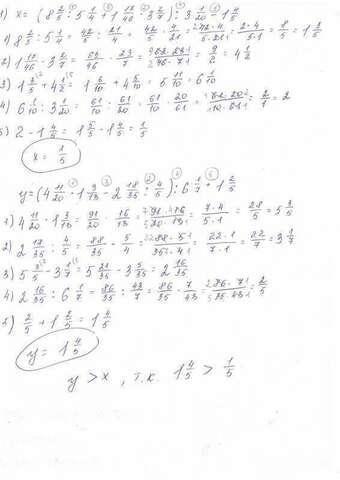 ) x = (8 2/5 : 5 1/4 + 1 17/46 · 3 2/7) : 3 1/20 - 1 4/5
1) 8 2/5 : 5 1/4 = 42/5 : 21/4 = 42/5 · 4/21 = 42·4/5·21 = 2·4/5·1 = 8/5 = 1 3/5
2) 1 17/46 · 3 2/7 = 63/46 · 23/7 = 63·23/46·7 = 9/2 = 4 1/2
3) 1 3/5 + 4 1/2 = 1 6/10 + 4 5/10 = 5 11/10 = 6 1/10
4) 6 1/10 : 3 1/20 = 61/10 : 61/20 = 61/10 · 20/61 = 61·20/10·61 = 2/1 = 2
5) 2 - 1 4/5 = 1 5/5 - 1 4/5 = 1/5
x = 1/5
y = (4 11/20 · 1 3/13 - 2 18/35 : 4/5) : 6 1/7 + 1 2/5
1) 4 11/20 · 1 3/13 = 91/20 · 16/13 = 91·16/20·13 = 7·4/5·1 = 28/5 = 5 3/5
2) 2 18/35 : 4/5 = 88/35 · 5/4 = 88·5/35·4 = 22·1/7·1 = 22/7 = 3 1/7
3) 5 3/5 - 3 1/7 = 5 21/35 - 3 5/35 = 2 16/35
4) 2 16/35 : 6 1/7 = 86/35 : 43/7 = 86/35 · 7/43 = 86·7/35·43 = 2/5
5) 2/5 + 1 2/5 = 1 4/5
y = 1 4/5
y > x , т.к. 1 4/5 > 1/5